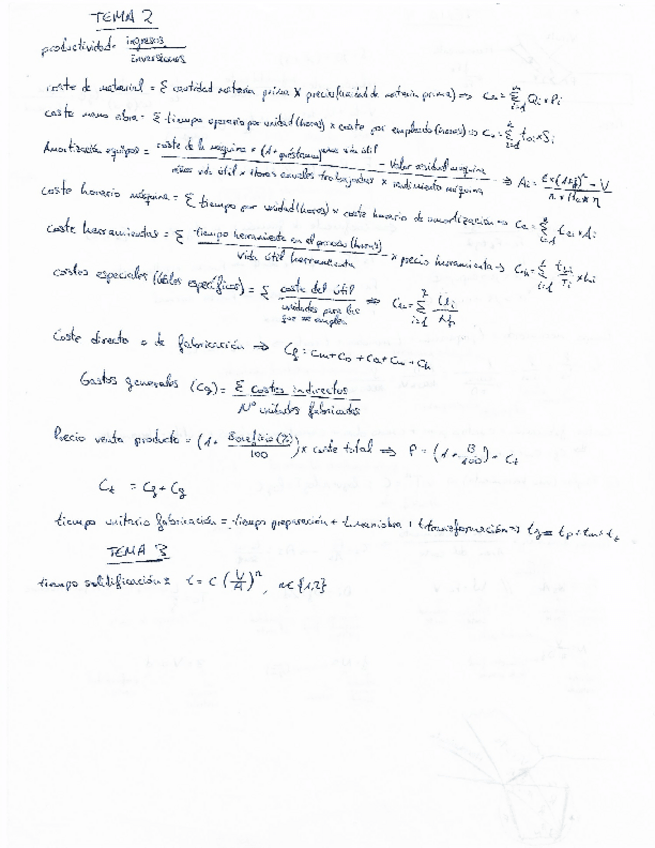 TEMA 2
productividad = ingresos / inversiones
coste de material = Σ cantidad materia prima × precio/cantidad de materia prima) => Cm = Σ Qi × Pi
coste mano obra = Σ tiempo operario por unidad (horas) × coste por empleado (horas) => Co = Σ toi × Si
Amortización equipos = coste de la máquina × (1+préstamo) años vida útil - Valor residual máquina / años vida útil × Horas anuales trabajadas × rendimiento máquina => Ai = C × (1+ ) - V / n × Ha × η
coste horario máquina = Σ tiempo por unidad (horas) × coste horario de amortización => Ca = Σ tai × Ai
coste herramientas = Σ tiempo herramienta en el proceso (horas) / Vida útil herramienta × precio herramienta => Ch = Σ thi / Ti × Li
costes especiales (útiles específicos) = Σ coste del útil / unidades para las que se emplea => Cu = Σ Ui / Nf
Coste directo o de fabricación => Cf = Cm + Co + Ca + Cu + Ch
Gastos generales (Cg) = Σ costes indirectos / Nº unidades fabricadas
Precio venta producto = (1 + Beneficio (%) / 100) × coste total => P = (1 + B / 100) × Ct
Ct = Cf + Cg
tiempo unitario fabricación = tiempo preparación + t.maniobra + t.transformación => tf = tp + tm + tt
TEMA 3
tiempo solidificación = t = C (V/A)^n, n∈{1,2}